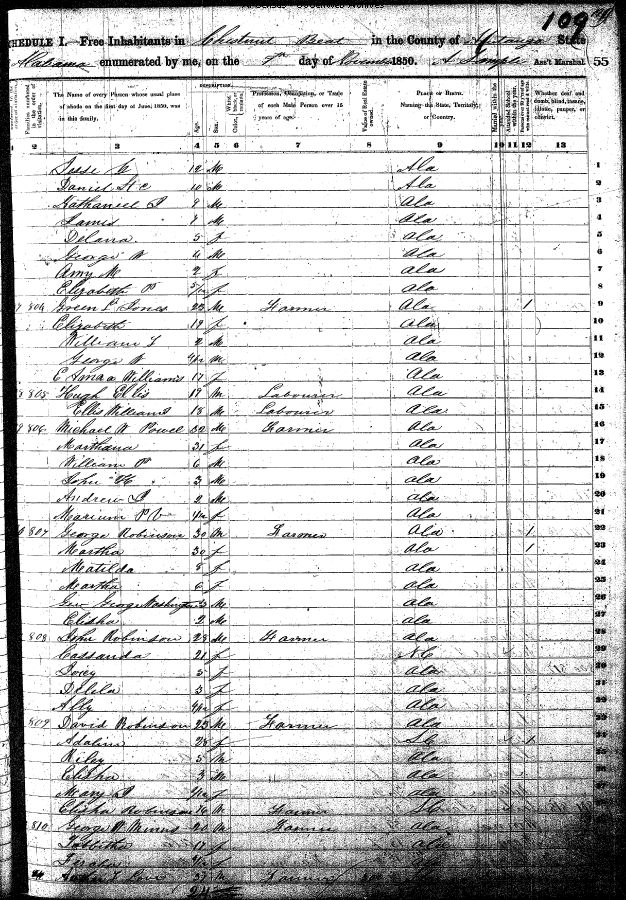 109
SCHEDULE I. Free Inhabitants in Chestnut Beat in the County of Autauga State
Alabama enumerated by me, on the 9th day of November 1850. A Semple Ass't Marshal. 55
DESCRIPTION.
The Name of every Person whose usual place of abode on the first day of June, 1850, was in this family.
Age.
Sex.
Color.
Profession, Occupation, or Trade of each Male Person over 15 years of age.
Value of Real Estate owned.
PLACE OF BIRTH. Naming the State, Territory, or Country.
Married within the year.
Attended School within the year.
Whether deaf and dumb, blind, insane, idiotic, pauper, or convict.
2 3 4 5 6 7 8 9 10 11 12 13
Jesse 12 M Ala 1
Daniel H C 10 M Ala 2
Nathaniel 8 M Ala 3
7 M Ala 4
Delana 5 f Ala 5
George W 4 M Ala 6
Amy M 2 f Ala 7
Elizabeth P 5/12 f Ala 8
804 Green L Jones 23 M Farmer Ala 1 9
Elizabeth 19 f Ala 10
William T 2 M Ala 11
George W 4/12 M Ala 12
E Amaa Williams 17 f Ala 13
805 Hugh Ellis 19 M Labourer Ala 14
Ellis Williams 18 M Labourer Ala 15
806 Michael W Powel 32 M Farmer Ala 16
Marthana 31 f Ala 17
William P 6 M Ala 18
John 3 M Ala 19
Andrew J 2 M Ala 20
Marium P V 4/12 f Ala 21
807 George Robinson 30 M Farmer Ala 1 22
Martha 30 f Ala 1 23
Matilda 8 f Ala 24
Martha 6 f Ala 25
George Washington 3 M Ala 26
Elisha 2 M Ala 27
808 John Robinson 28 M Farmer Ala 28
Cassanda 21 f N C 29
Dovey 5 f Ala 30
Delila 3 f Ala 31
Ally 4/12 f Ala 32
809 David Robinson 25 M Farmer Ala 33
Adaline 28 f S C 34
Riley 5 M Ala
Elisha 3 M Ala
Mary f Ala
Elisha Robinson M Farmer S C
810 George W Mimms 20 M Farmer Ala
Tabitha 17 f Ala
f Ala
M Farmer